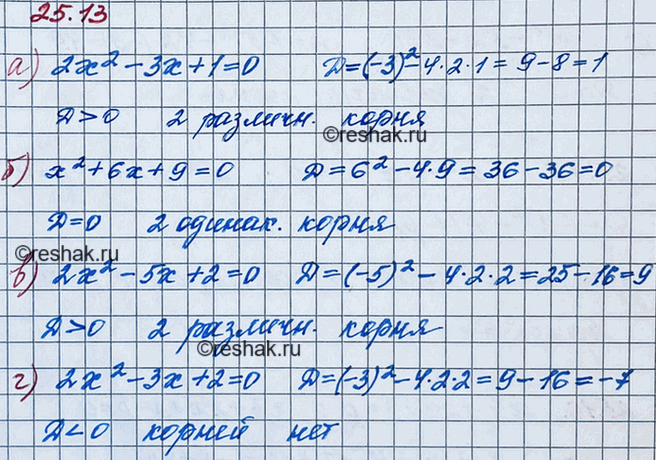 25.13
а) 2x² - 3x + 1 = 0 D = (-3)² - 4·2·1 = 9 - 8 = 1
D > 0 2 различн. корня
©reshak.ru
б) x² + 6x + 9 = 0 D = 6² - 4·9 = 36 - 36 = 0
D = 0 2 одинак. корня
©reshak.ru
в) 2x² - 5x + 2 = 0 D = (-5)² - 4·2·2 = 25 - 16 = 9
D > 0 2 различн. корня
©reshak.ru
г) 2x² - 3x + 2 = 0 D = (-3)² - 4·2·2 = 9 - 16 = -7
D < 0 корней нет